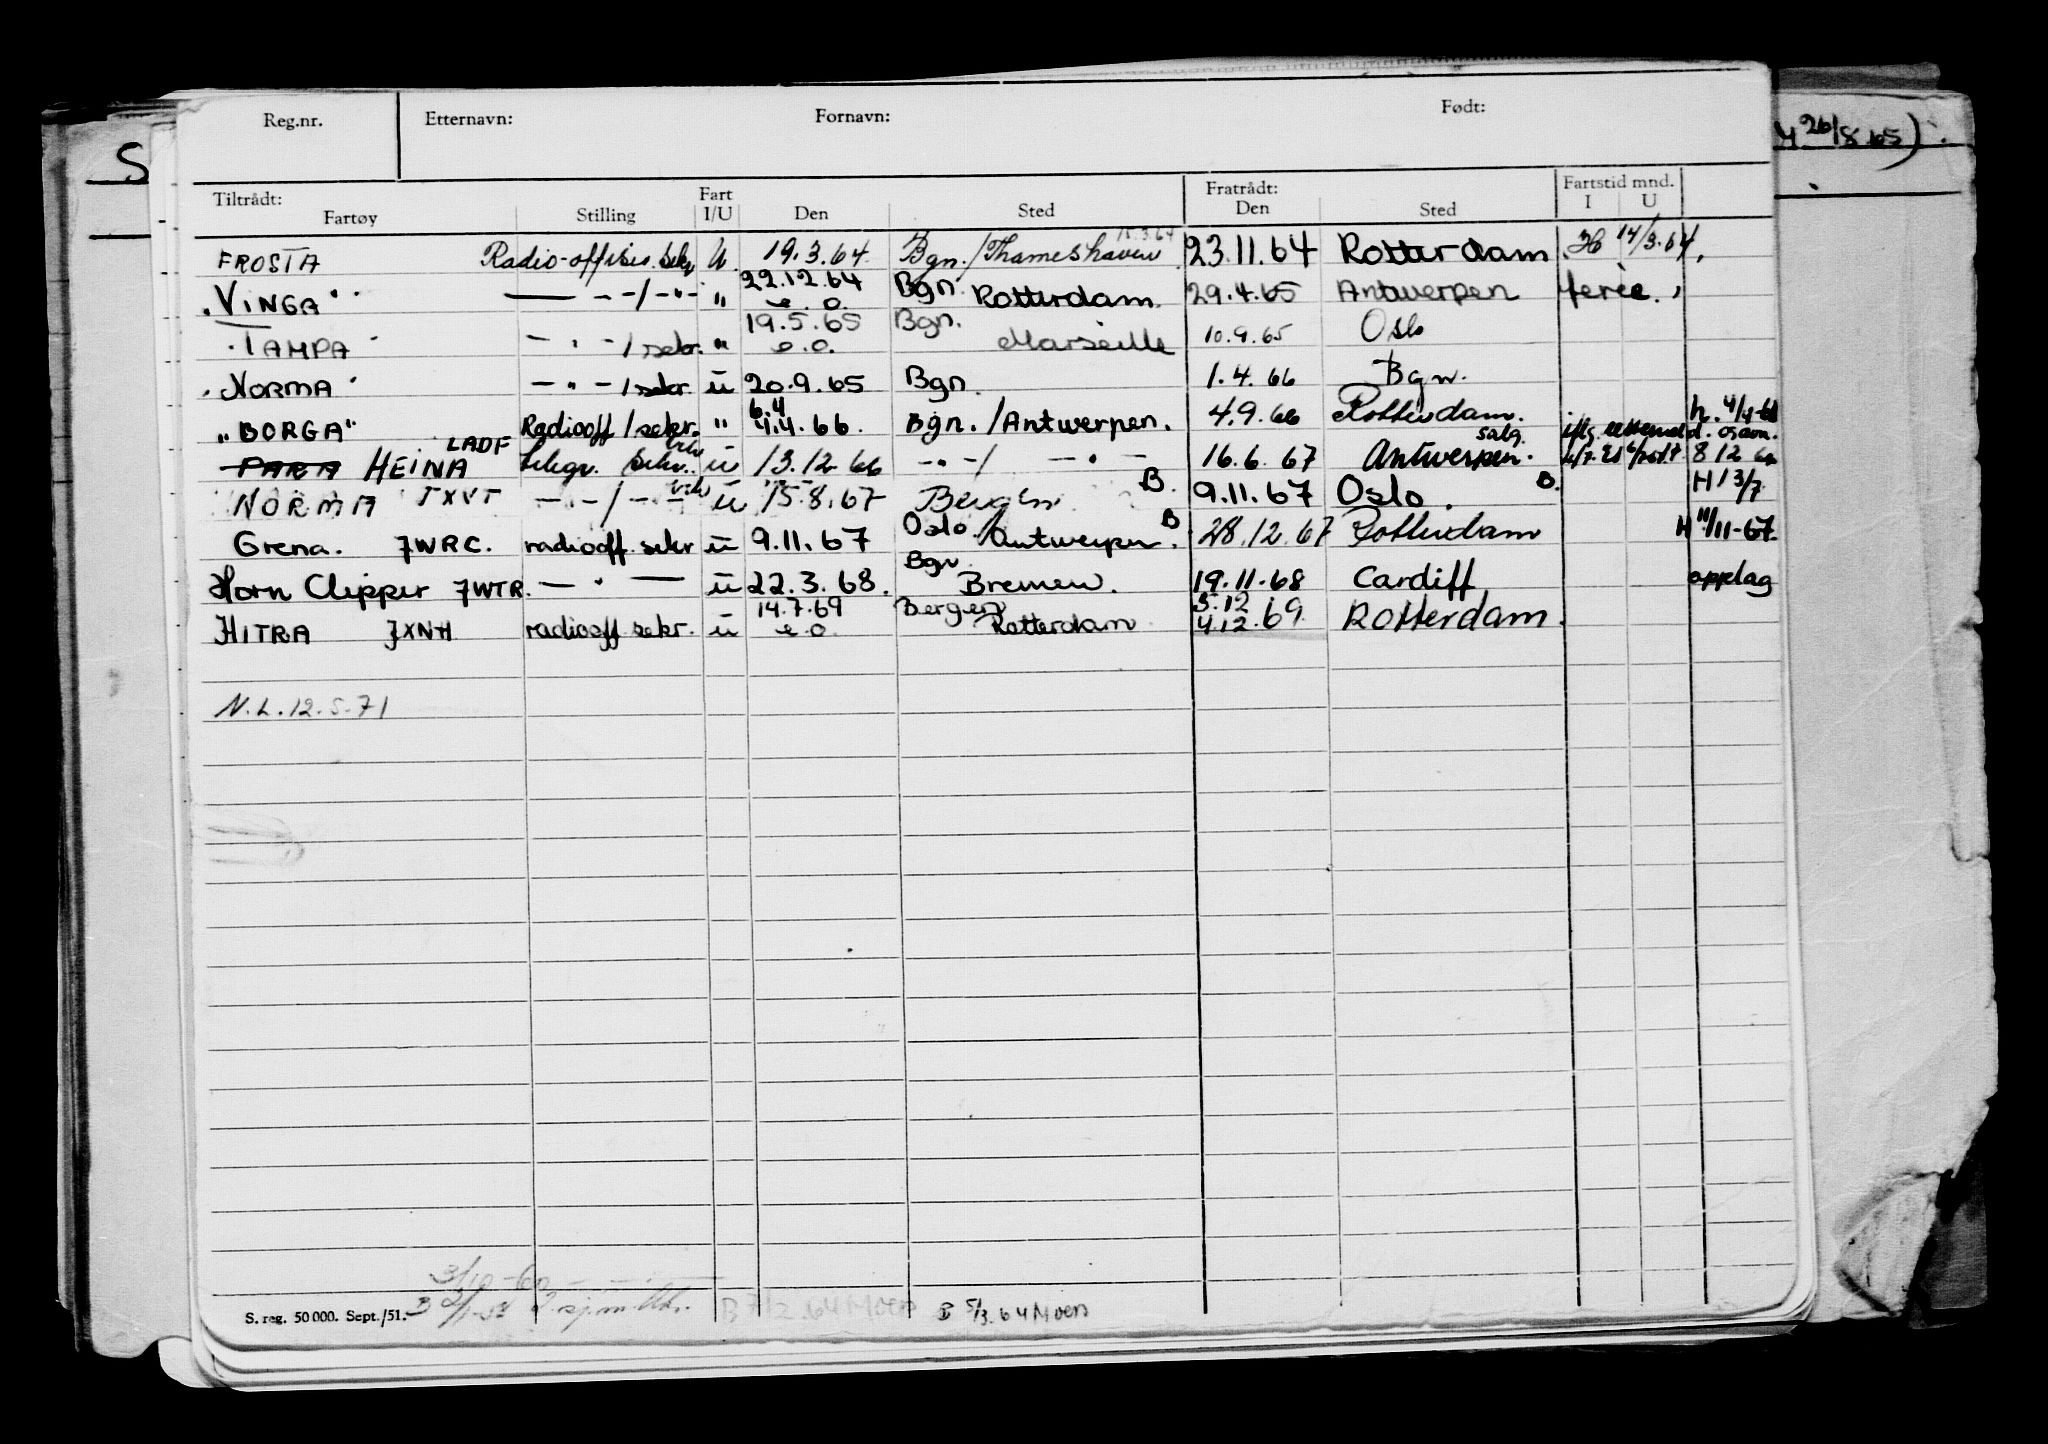 Reg.nr. Etternavn: Fornavn: Født:
26/8 65)
S
Tiltrådt: Fart Fratrådt: Fartstid mnd.
Fartøy Stilling I/U Den Sted Den Sted I U
FROSTA Radio-offiser. sekr U. 19.3.64. Bgn./Thameshaven 15.3.64 23.11.64 Rotterdam H 14/3.64.
"VINGA" — " — / - " - " 22.12.64 e.o. Bgn. Rotterdam. 29.4.65 Antwerpen ferie.
"TAMPA" - " - / sekr. " 19.5.65 e.o. Bgn. Marseille 10.9.65 Oslo
"NORMA" - " - / sekr. u 20.9.65 Bgn. 1.4.66 Bgn.
"BORGA" Radiooff / sekr. " 6.4 4.4.66. Bgn. / Antwerpen. 4.9.66 Rotterdam. h. 4/4-66
PARA HEINA LADF telegr. / sekr. u 13.12.66 - " - / - " - 16.6.67 salg. Antwerpen. 8 12 66
NORMA JXVT - " - / - " - u 15.8.67 Bergen B. 9.11.67 Oslo. B. H 13/7
Grena. JWRC. radiooff. sekr u 9.11.67 Oslo / Antwerpen. B 28.12.67 Rotterdam H 11/11-67.
Horn Clipper JWTR. — " — u 22.3.68. Bgn. Bremen. 19.11.68 Cardiff opplag
HITRA JXNH radiooff sekr. u 14.7.69 e.o. Bergen Rotterdam 3.12 4.12.69. Rotterdam.
N.L. 12.5.71
3/10-60
S. reg. 50 000. Sept./51. B 7/2.64 Moen B 5/3.64 Moen